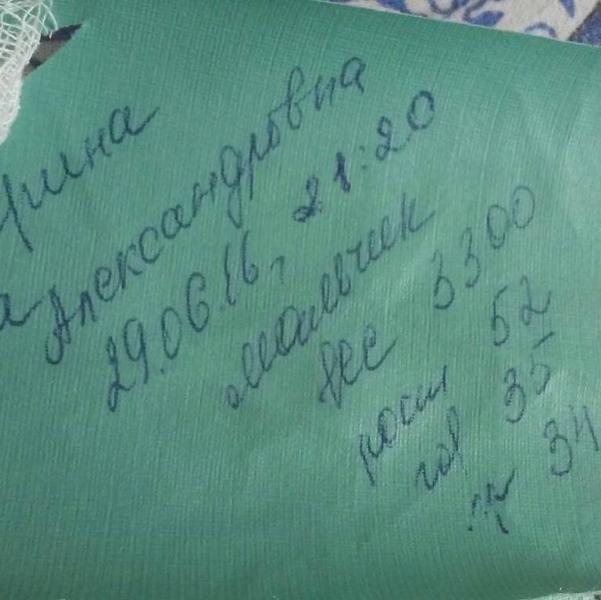 рина
а Александровна
29.06.16, 21:20
мальчик
вес 3300
рост 52
гол 35
гр 34